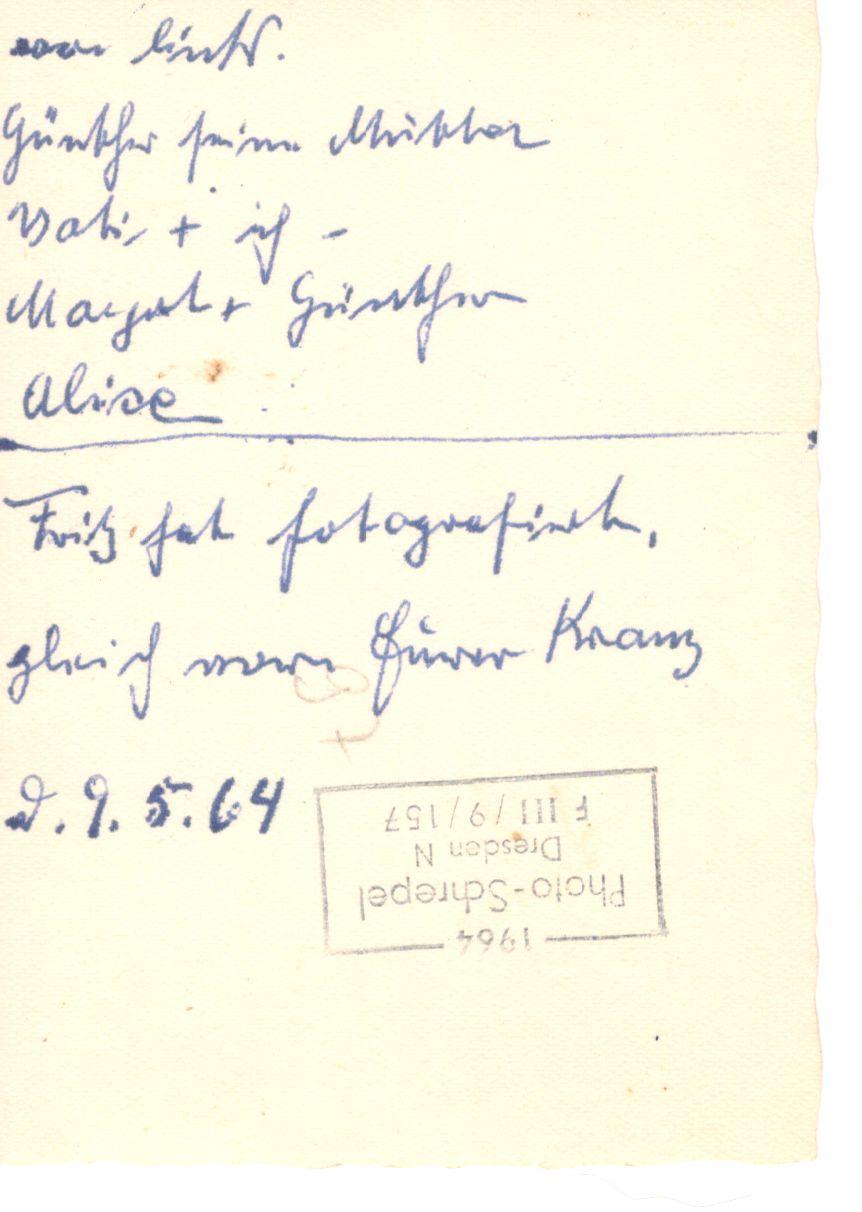 von links.
Günther seine Mutter
Vati + ich -
Margot + Günther
Alice
Fritz hat fotografiert,
gleich vorn Kranz
d. 9. 5. 64
1964
Photo-Schrepel
Dresden N
F III/9/157